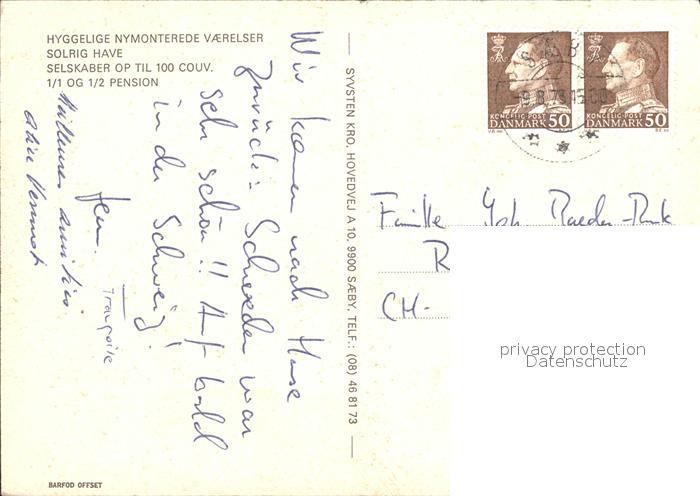 HYGGELIGE NYMONTEREDE VÆRELSER
SOLRIG HAVE
SELSKABER OP TIL 100 COUV.
1/1 OG 1/2 PENSION
Wir kamen nach Hause
zurück: Schweden war
sehr schön!! Auf bald
in der Schweiz!
Jean.
Françoise
SYVSTEN KRO. HOVEDVEJ A 10, 9900 SÆBY. TELF.: (08) 46 81 73
KONGELIG POST
DANMARK 50
KONGELIG POST
DANMARK 50
Familie
R
CH-
privacy protection
Datenschutz
BARFOD OFFSET